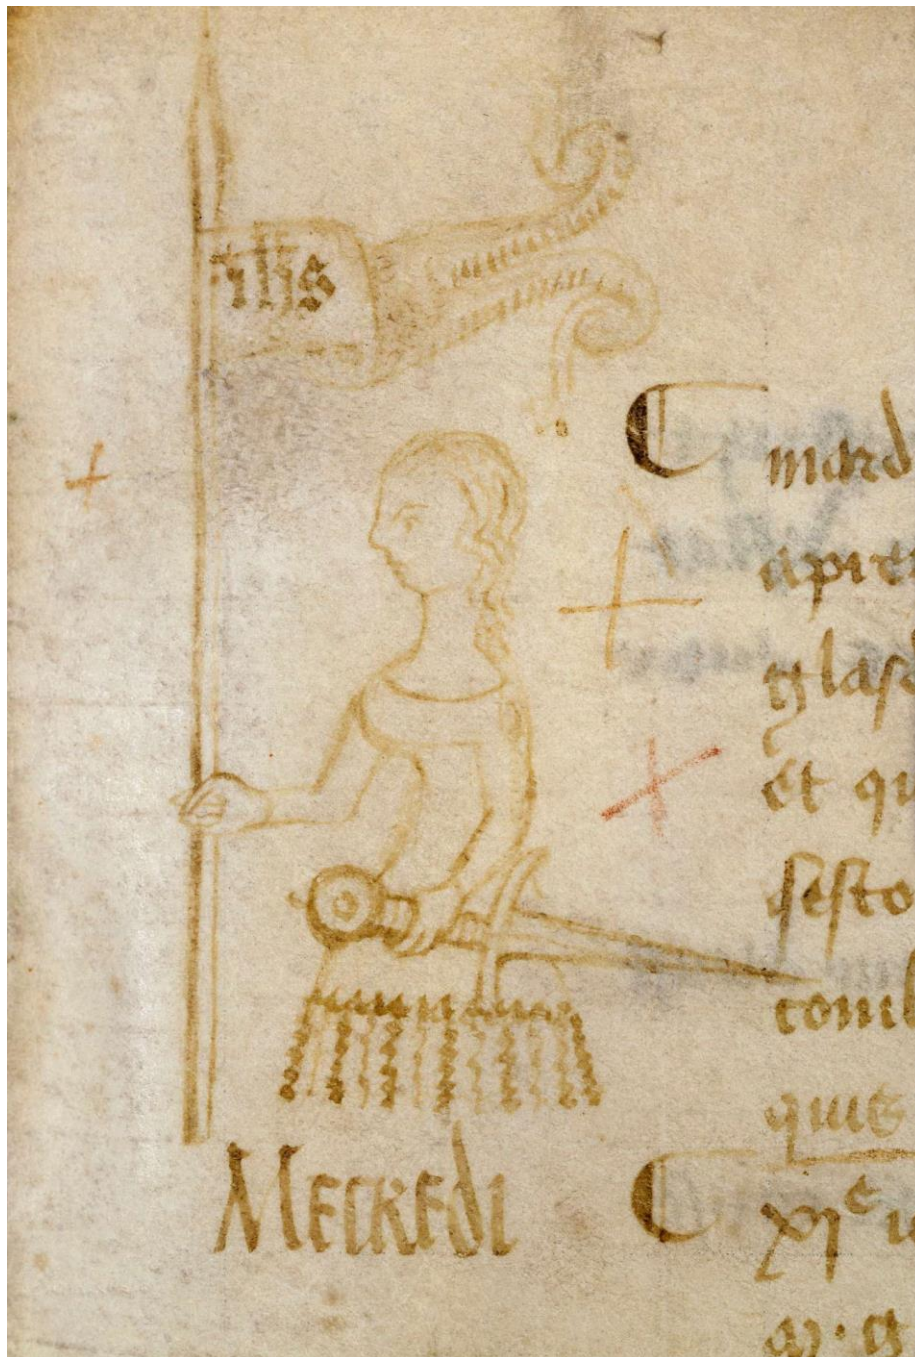 ihs
mard
apre
glas
et qu
sesto
comb
quis
Mecredi
xj^e